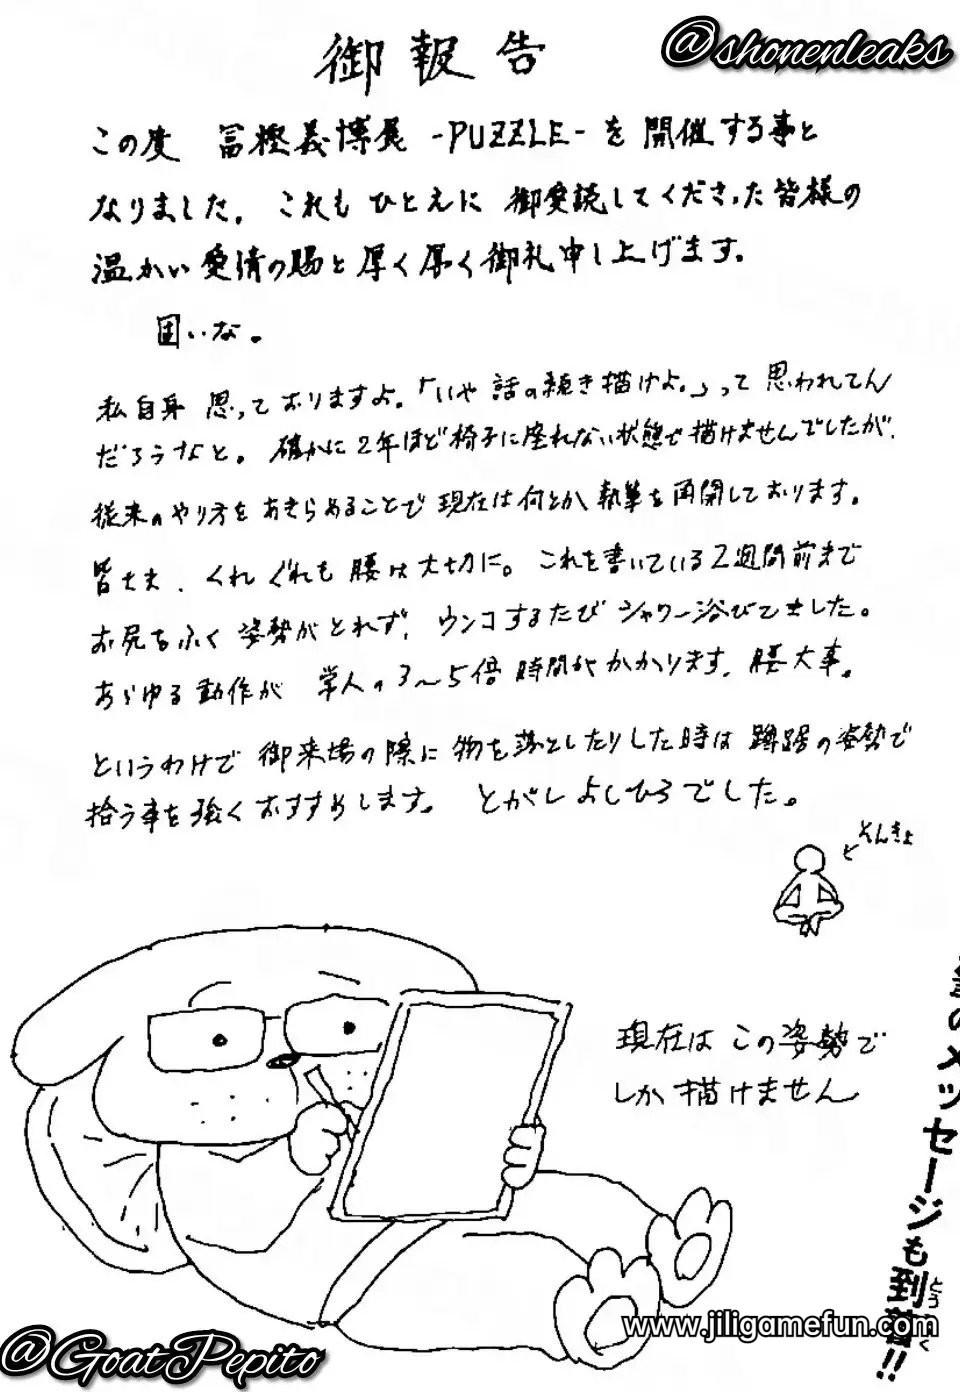 @shonenleaks
御報告
この度 冨樫義博展 -PUZZLE- を開催する事と
なりました。これもひとえに 御愛読してくださった皆様の
温かい愛情の賜と厚く厚く御礼申し上げます。
固いな。
私自身 思っておりますよ。「いや 話の続き描けよ。」って 思われてん
だろうなと。確かに2年ほど椅子に座れない状態で描けませんでしたが、
従来のやり方をあきらめることで現在は何とか執筆を再開しております。
皆さま、くれぐれも腰は大切に。これを書いている2週間前まで
お尻をふく姿勢がとれず、ウンコするたびシャワー浴びてました。
あらゆる動作が 常人の3〜5倍時間がかかります。腰大事。
というわけで 御来場の際に物を落としたりした時は 蹲踞の姿勢で
拾う事を強くおすすめします。 とがしよしひろでした。
そんきょ
現在は この姿勢で
しか描けません
のメッセージも到着!!
とうちゃく
www.jiligamefun.com
@GoatPepito